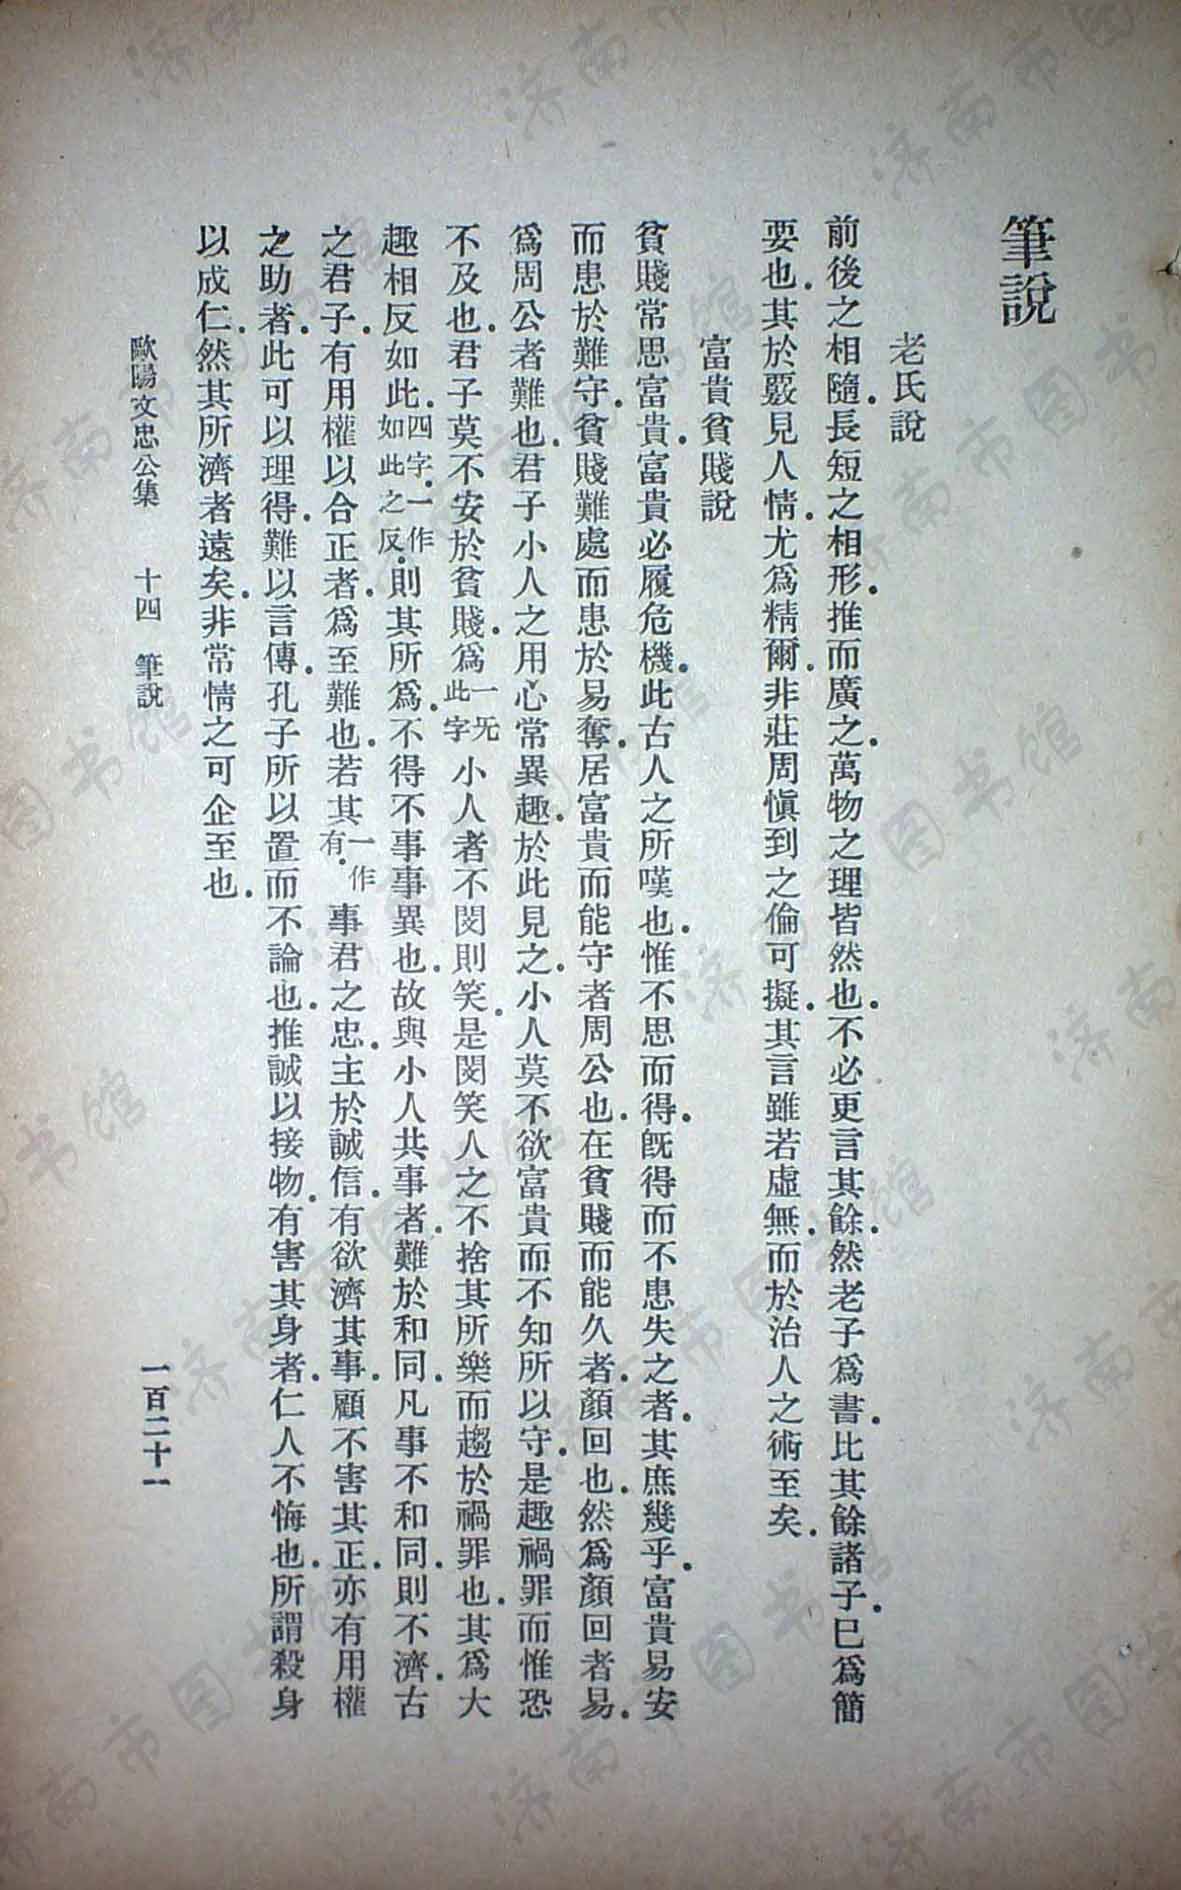 筆說
老氏說
前後之相隨．長短之相形．推而廣之．萬物之理皆然也．不必更言其餘．然老子爲書．比其餘諸子．已爲簡
要也．其於覈見人情．尤爲精爾．非莊周愼到之倫可擬．其言雖若虛無．而於治人之術至矣．
富貴貧賤說
貧賤常思富貴．富貴必履危機．此古人之所嘆也．惟不思而得．旣得而不患失之者．其庶幾乎．富貴易安
而患於難守．貧賤難處而患於易奪．居富貴而能守者周公也．在貧賤而能久者．顏回也．然爲顏回者易．
爲周公者難也．君子小人之用心常異趣．於此見之．小人莫不欲富貴而不知所以守．是趣禍罪而惟恐
不及也．君子莫不安於貧賤．爲一无此字小人者不閔則笑．是閔笑人之不捨其所樂而趨於禍罪也．其爲大
趣相反如此．四字．一作如此之反．則其所爲．不得不事事異也．故與小人共事者．難於和同．凡事不和同．則不濟．古
之君子．有用權以合正者．爲至難也．若其一作有．事君之忠．主於誠信．有欲濟其事．顧不害其正．亦有用權
之助者．此可以理得．難以言傳．孔子所以置而不論也．推誠以接物．有害其身者．仁人不悔也．所謂殺身
以成仁．然其所濟者遠矣．非常情之可企至也．
歐陽文忠公集 十四 筆說 一百二十一
济南市图书馆